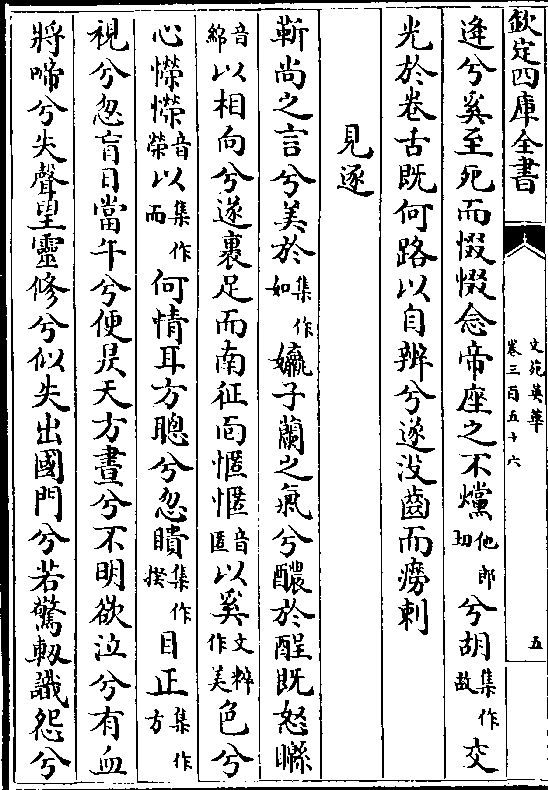 欽定四庫全書
文苑英華
卷三百五十六
五
逄兮奚至死而惙惙念帝座之不爣他郎切兮胡集作故交
光於卷舌既何路以自辨兮遂没齒而癆刺
見逐
靳尚之言兮美於集作如嬴子蘭之氣兮醲於酲既怒㬆
音綿以相向兮遂裹足而南征面慝慝音匿以奚文粹作美色兮
心㦨㦨音榮以集作而何情耳方聰兮忽聵集作揆目正集作方
視兮忽盲日當午兮便昃天方晝兮不明欲泣兮有血
將啼兮失聲望靈修兮似失出國門兮若驚軔識怨兮